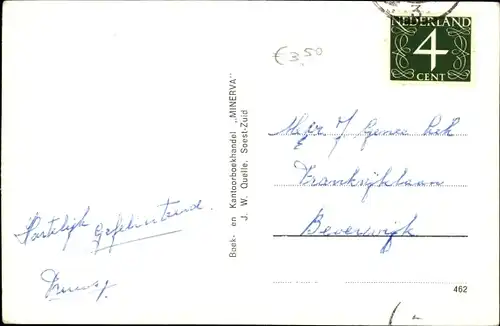 3
NEDERLAND
4
CENT
€ 3,50
Boek- en Kantoorboekhandel „MINERVA”
J. W. Quelle. Soest-Zuid
Hartelijk Gefeliciteerd.
Mej.
Frankrijklaan
Beverwijk
462